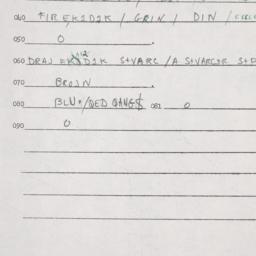 040 FIREKIDIK / GRIN / DIN /
050 0 .
060 DRAJ EKIDIK STVARC / A STVARCIR
070 BROJN .
080 BLU=/QED QANG$ 081 0
090 0